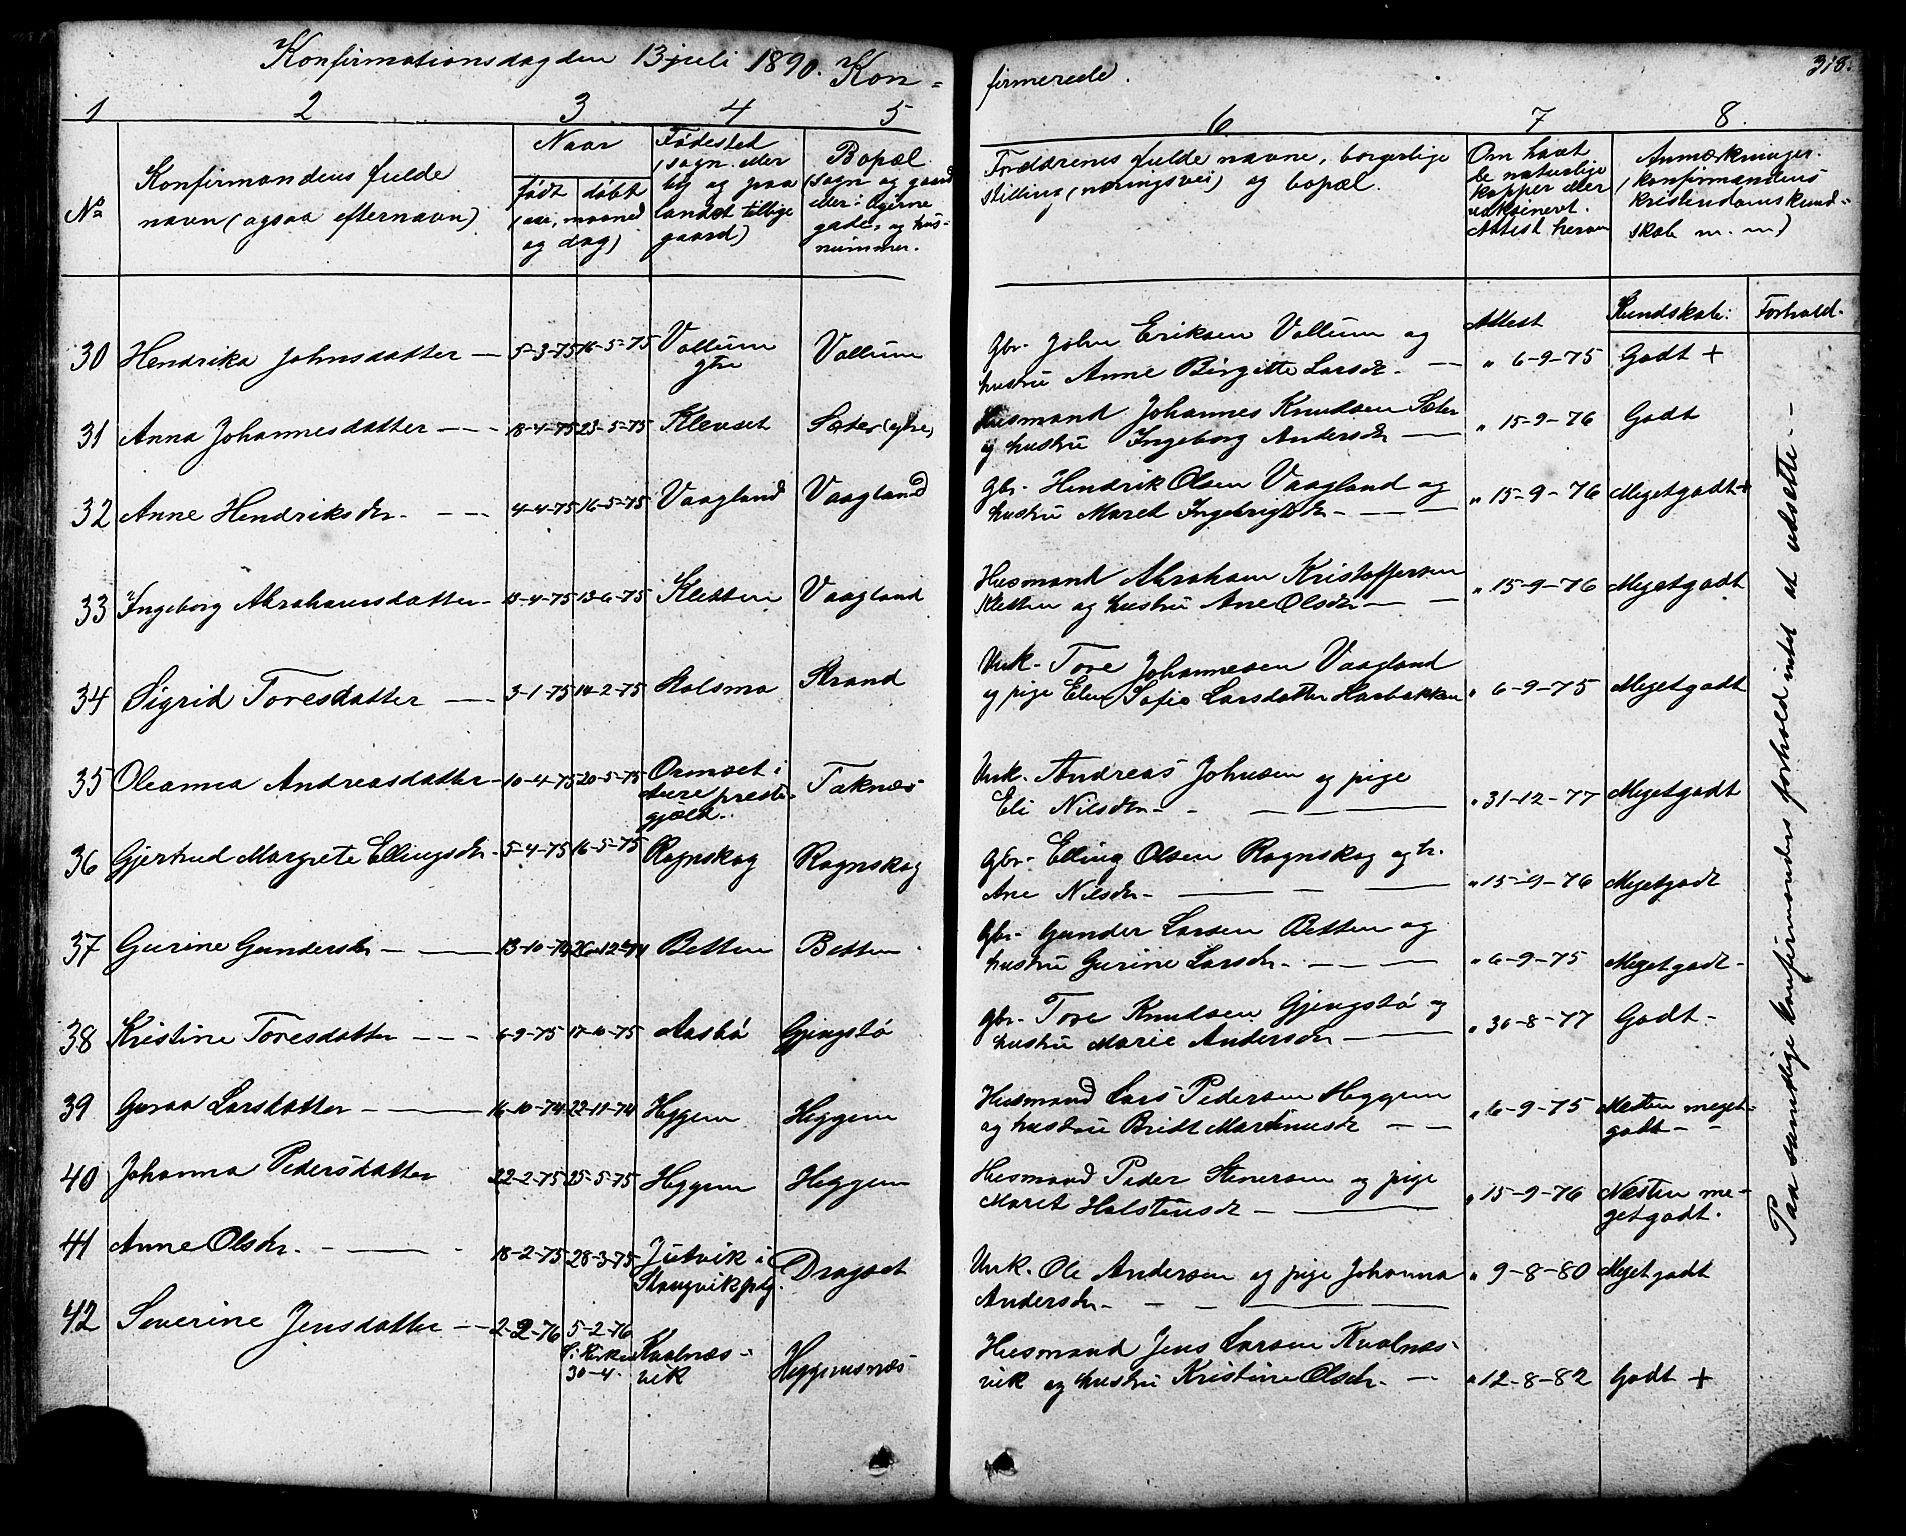 Konfirmationsdag den 13 juli 1890. Kon-
firmerede.
318.
1 2 3 4 5 6 7 8.
No
Konfirmandens fulde
navn (ogsaa efternavn)
Naar
født døbt
(aar, maaned
og dag)
Fødested
(sogn eller
by og paa
landet tillige
gaard)
Bopæl
(sogn og gaard
eller i byerne
gade- og hus-
nummer.
Forældrenes fulde navne, borgerlige
stilling (næringsvei) og bopæl.
Om havt
de naturlige
kopper eller
vaksineret.
Attest herom
Anmærkninger.
(konfirmandens
kristendomskund-
skab m. m)
Kundskab: Forhold.
30 Hendrika Johnsdatter — 5-3-75 16-5-75 Vullum gbr Vullum
Gbr. John Eriksen Vullum og
hustru Anne Birgitte Larsdr. —
Attest
" 6-9-75 Godt +
31 Anna Johannesdatter - - - 18-4-75 23-5-75 Klevset Sæter (gbr)
Husmand Johannes Knudsen Sæter
og hustru Ingeborg Andersdr —
" 15-9-76 Godt
32 Anne Hendriksdr. - - - 4-4-75 16-5-75 Vaagland Vaagland
Gbr. Hendrik Olsen Vaagland og
hustru Maret Ingebrigtsdr - — —
" 15-9-76 Meget godt +
33 Ingeborg Abrahamsdatter - 13-4-75 13-6-75 Kletten Vaagland
Husmand Abraham Kristoffersen
Kletten og hustru Ane Olsdr — —
" 15-9-76 Meget godt
34 Sigrid Toresdatter — 3-1-75 14-2-75 Halsmo Strand
Unk. Tore Johannesen Vaagland
og pige Elen Sofie Larsdatter Karbakken
" 6-9-75 Meget godt
35 Oleanna Andreasdatter - 10-4-75 20-5-75 Ormset i
Aure preste-
gjæld. Taknæs
Unk. Andreas Johnsen og pige
Eli Nilsdr - - — — —
" 31-12-77 Meget godt
36 Gjertrud Margrete Ellingsdr. 5-4-75 16-5-75 Rognskog Rognskog
Gbr. Elling Olsen Rognskog og h.
Ane Nilsdr - — — —
" 15-9-76 Meget godt
37 Gurine Gundersdr — — 13-10-74 26-12-74 Betten Betten
Gbr. Gunder Larsen Betten og
hustru Gurine Larsdr - — — —
" 6-9-75 Meget godt -
38 Kristine Toresdatter - - - 6-9-75 17-10-75 Aasbø Gjengstø
Gbr. Tore Knudsen Gjengstø og
hustru Marie Andersdr — —
" 30-8-77 Godt -
39 Guraa Larsdatter - — 16-10-74 22-11-74 Heggem Heggem
Husmand Lars Pedersen Heggem
og hustru Bridt Martinusdr — —
" 6-9-75 Næsten meget
godt - -
40 Johanna Pedersdatter 22-2-75 25-5-75 Heggem Heggem
Husmand Peder Stenersen og pige
Maret Halstensdr — —
" 15-9-76 Næsten me-
get godt.
41 Anne Olsdr. - — - 18-2-75 28-3-75 Jutvik i
Stangvik pstg. Dragset
Unk. Ole Andersen og pige Johanna
Andersdr - - - —
" 9-8-80 Meget godt
42 Severine Jensdatter — 2-2-76 5-2-76
i Kirken
30-4. Kvalnæs-
vik Heggemsnæs
Husmand Jens Larsen Kvalnæs-
vik og hustru Kristine Olsdr. —
" 12-8-82 Godt +
Paa samtlige konfirmanders forhold intet at udsætte - -